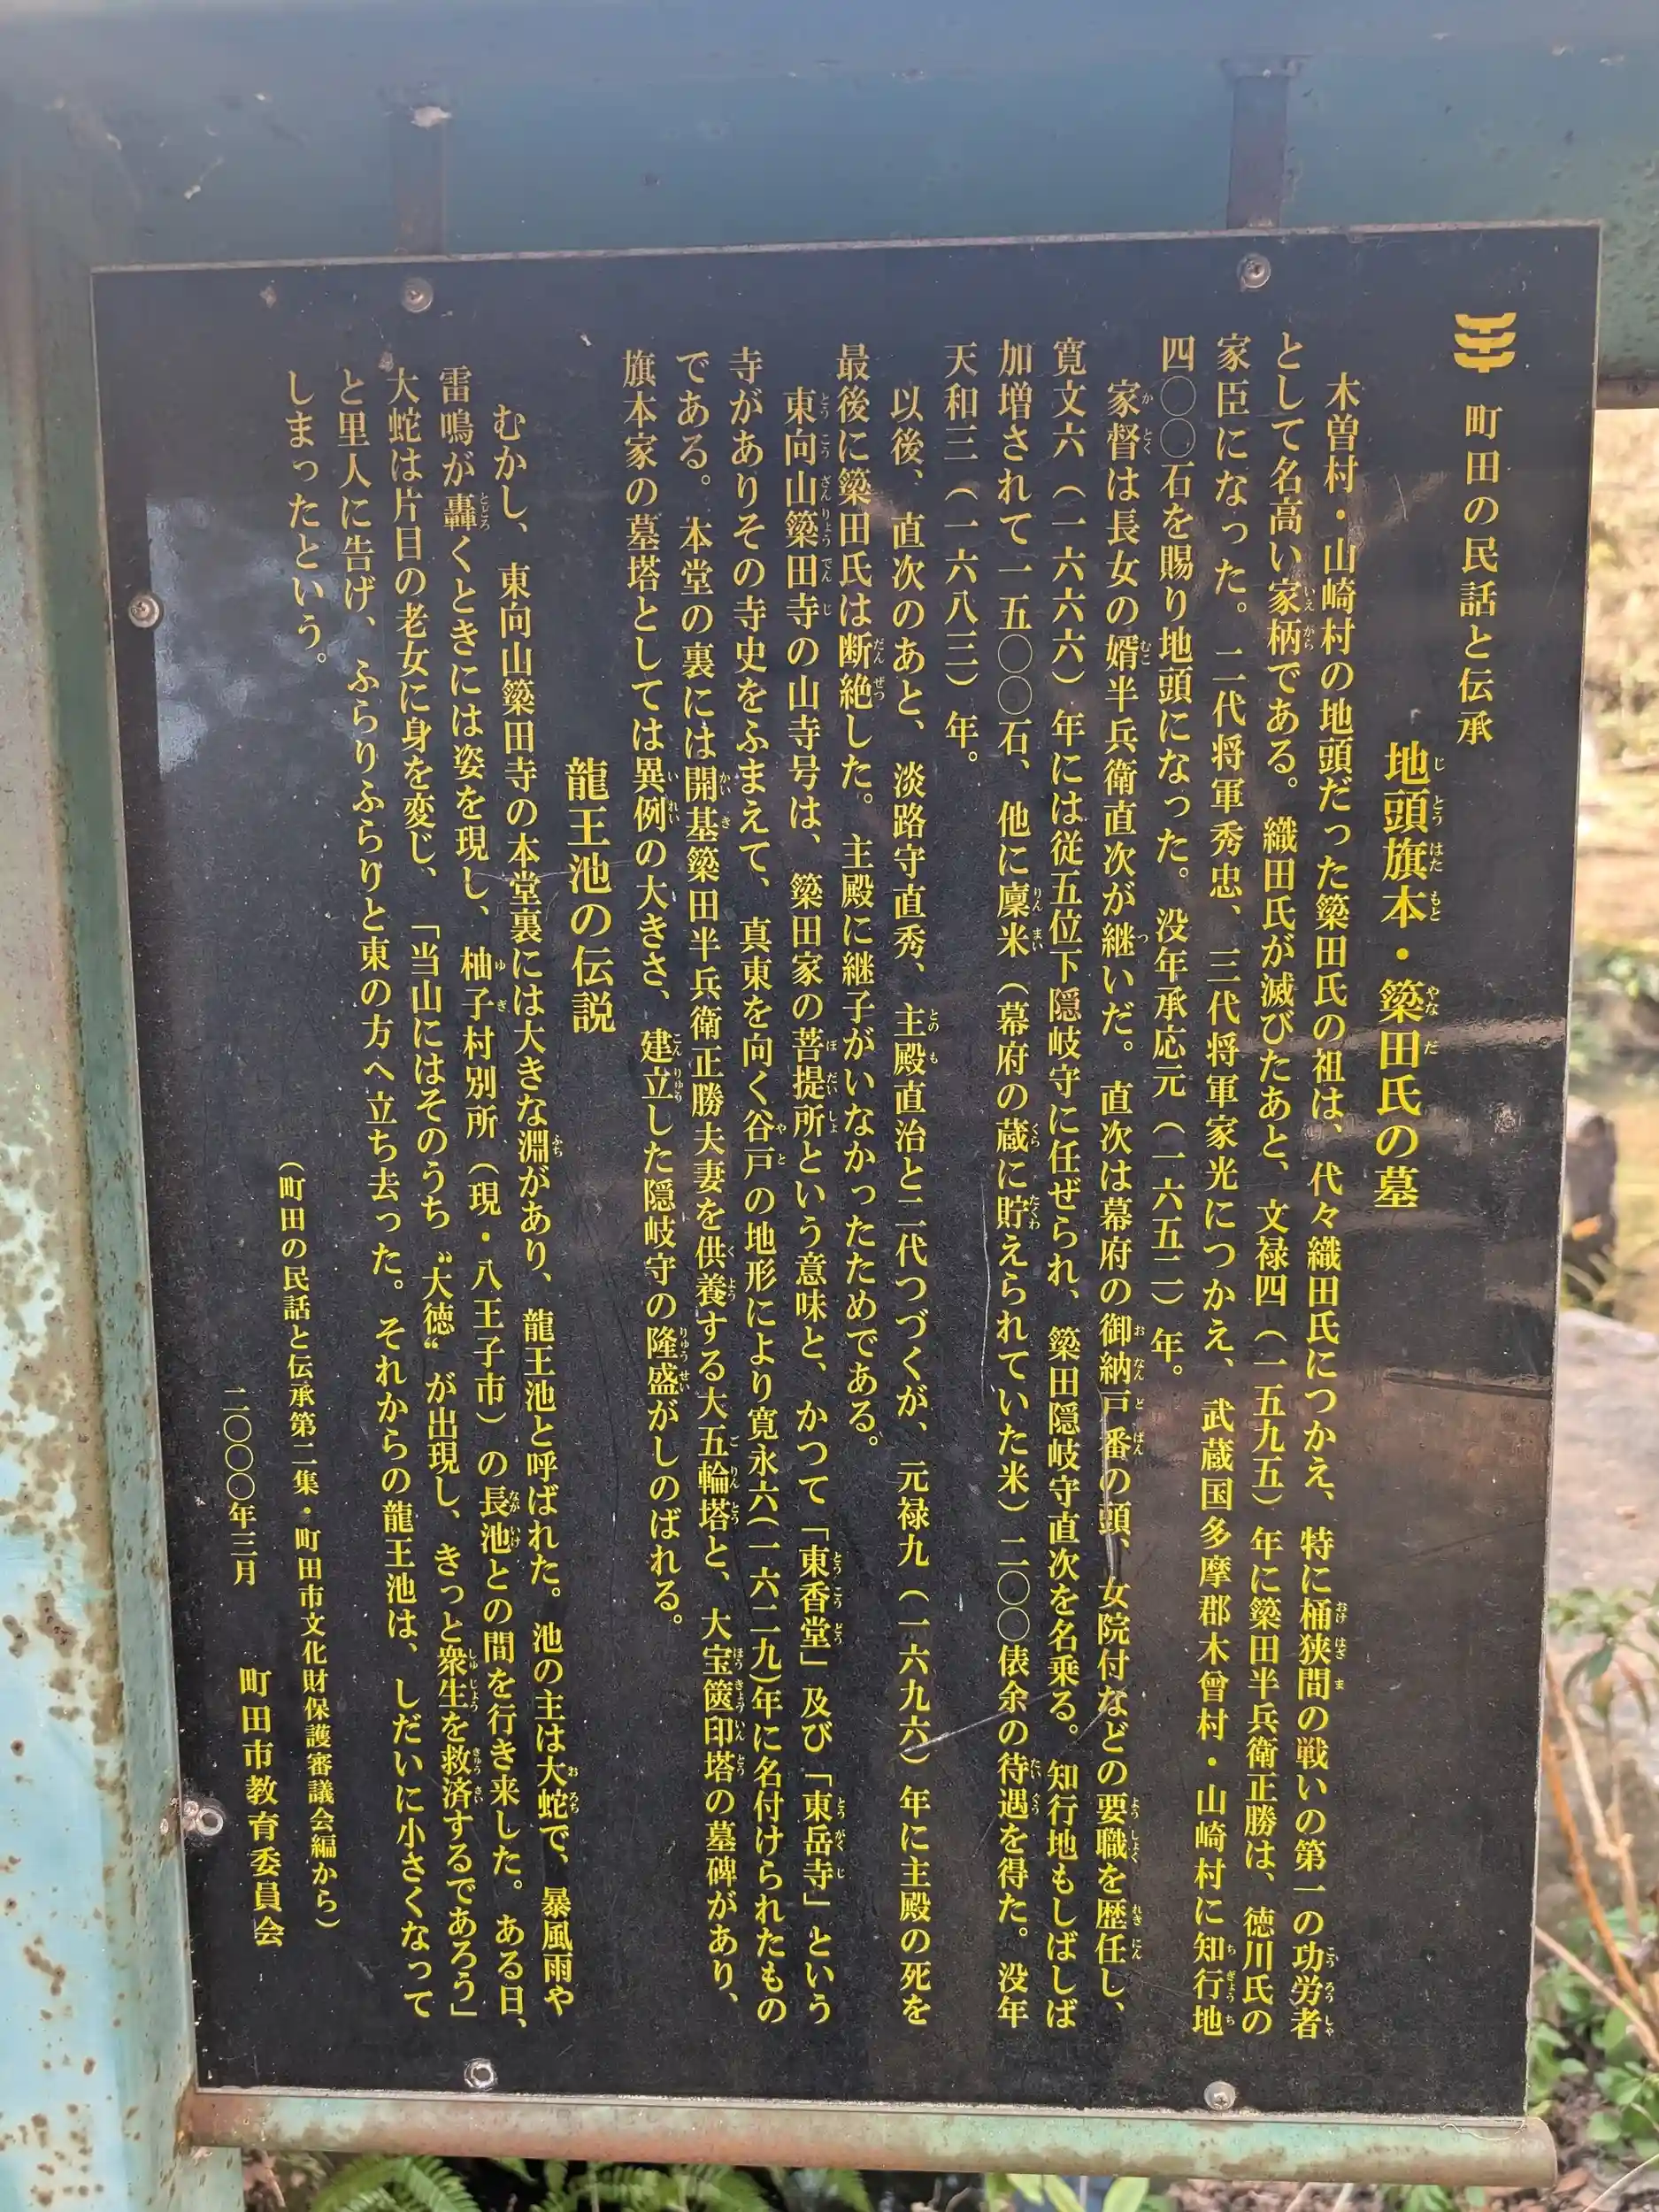 町田の民話と伝承
地頭旗本・簗田氏の墓
木曽村・山崎村の地頭だった簗田氏の祖は、代々織田氏につかえ、特に桶狭間の戦いの第一の功労者
として名高い家柄である。織田氏が滅びたあと、文禄四（一五九五）年に簗田半兵衛正勝は、徳川氏の
家臣になった。二代将軍秀忠、三代将軍家光につかえ、武蔵国多摩郡木曾村・山崎村に知行地
四〇〇石を賜り地頭になった。没年承応元（一六五二）年。
家督は長女の婿半兵衛直次が継いだ。直次は幕府の御納戸番の頭、女院付などの要職を歴任し、
寛文六（一六六六）年には従五位下隠岐守に任ぜられ、簗田隠岐守直次を名乗る。知行地もしばしば
加増されて一五〇〇石、他に廩米（幕府の蔵に貯えられていた米）二〇〇俵余の待遇を得た。没年
天和三（一六八三）年。
以後、直次のあと、淡路守直秀、主殿直治と二代つづくが、元禄九（一六九六）年に主殿の死を
最後に簗田氏は断絶した。主殿に継子がいなかったためである。
東向山簗田寺の山寺号は、簗田家の菩提所という意味と、かつて「東香堂」及び「東岳寺」という
寺がありその寺史をふまえて、真東を向く谷戸の地形により寛永六(一六二九)年に名付けられたもの
である。本堂の裏には開基簗田半兵衛正勝夫妻を供養する大五輪塔と、大宝篋印塔の墓碑があり、
旗本家の墓塔としては異例の大きさ、建立した隠岐守の隆盛がしのばれる。
龍王池の伝説
むかし、東向山簗田寺の本堂裏には大きな淵があり、龍王池と呼ばれた。池の主は大蛇で、暴風雨や
雷鳴が轟くときには姿を現し、柚子村別所（現・八王子市）の長池との間を行き来した。ある日、
大蛇は片目の老女に身を変じ、「当山にはそのうち〝大徳〟が出現し、きっと衆生を救済するであろう」
と里人に告げ、ふらりふらりと東の方へ立ち去った。それからの龍王池は、しだいに小さくなって
しまったという。
（町田の民話と伝承第二集・町田市文化財保護審議会編から）
二〇〇〇年三月　町田市教育委員会